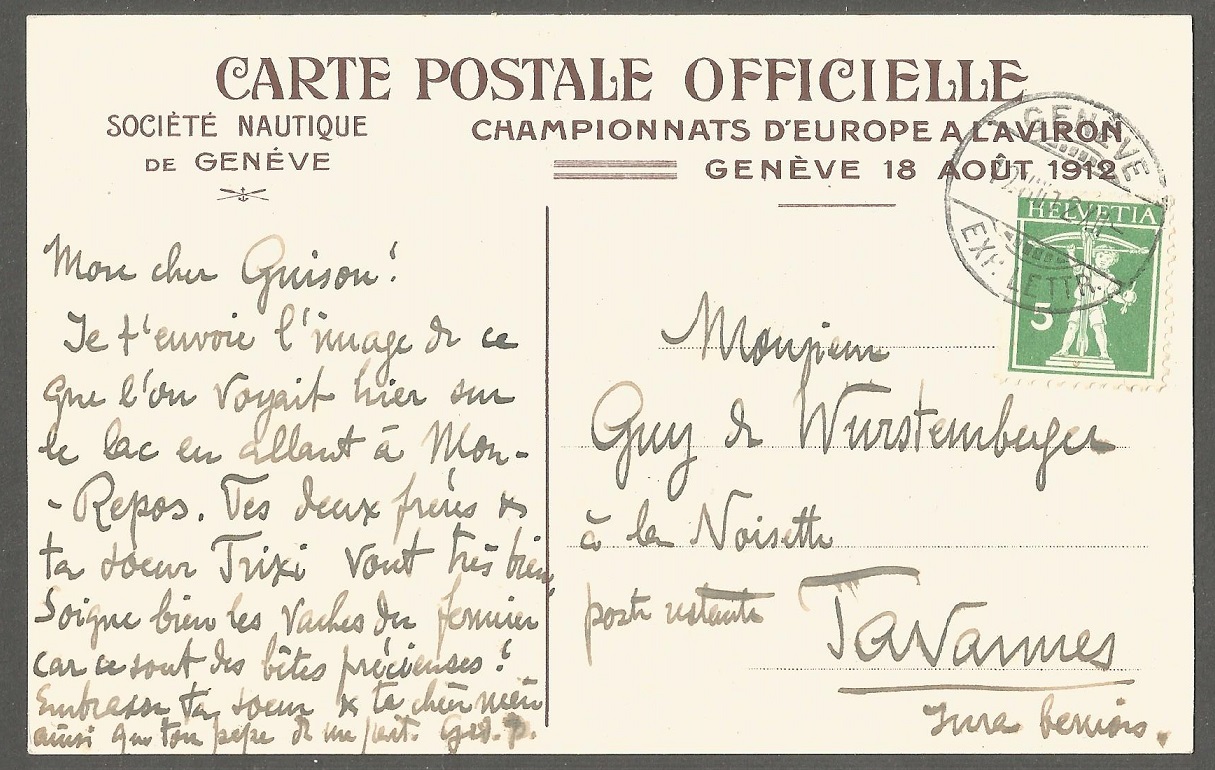 CARTE POSTALE OFFICIELLE
SOCIÈTÉ NAUTIQUE
DE GENÉVE
CHAMPIONNATS D'EUROPE A L'AVIRON
GENÈVE 18 AOÛT 1912
GENÈVE
EXP. LETTR.
HELVETIA
5
Mon cher Guison!
Je t'envoie l'image de ce
que l'on voyait hier sur
le lac en allant à Mon-
-Repos. Tes deux frères &
ta soeur Trixi vont très bien
Soigne bien les vaches du fermier
car ce sont des bêtes précieuses!
Embrasse ta soeur & ta chère mère
ainsi que ton pepe de ma part.
Monsieur
Guy de Wurstemberger
à la Noisette
poste restante
Tavannes
Jura bernois.